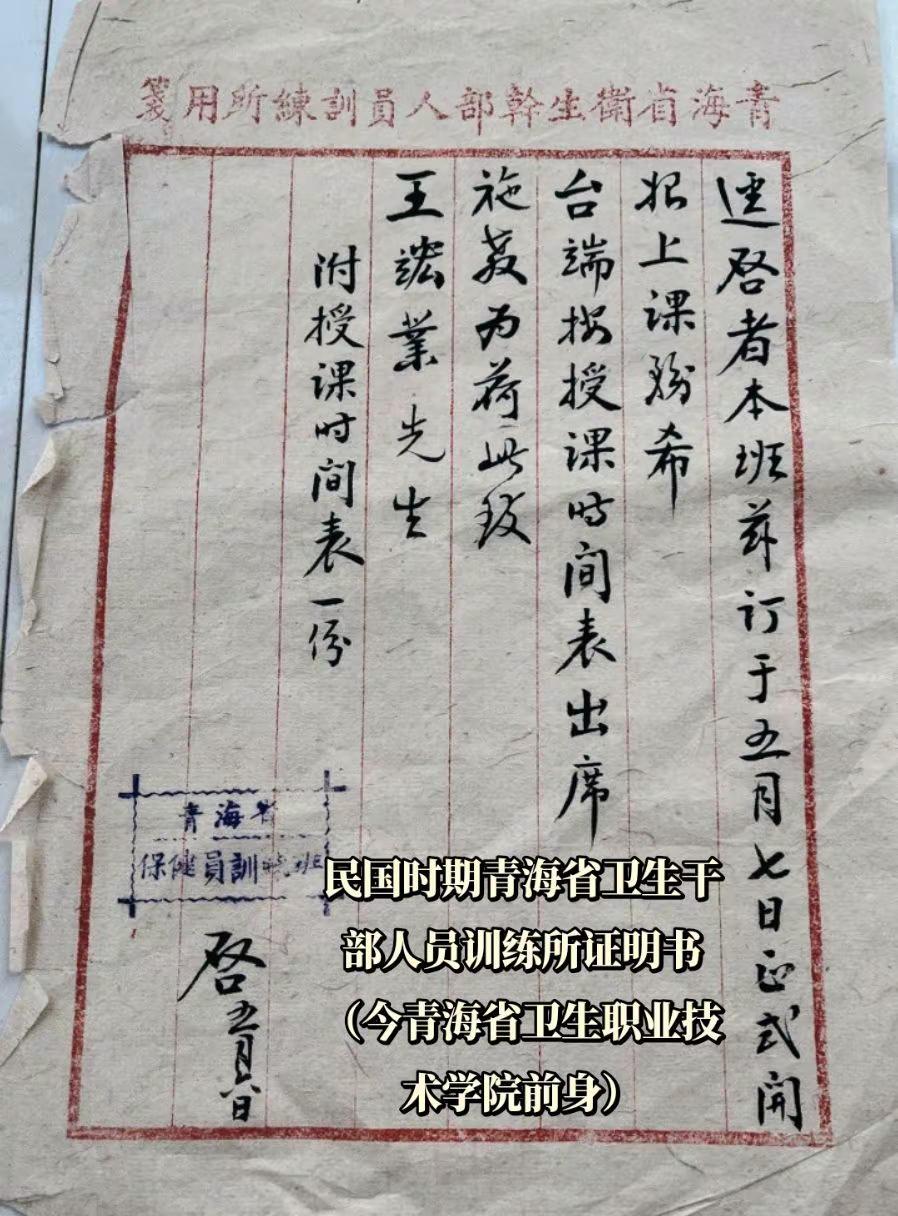 青海省衛生幹部人員訓練所用箋
逕啓者本班兹订于五月七日正式開
始上课務希
台端按授课时间表出席
施教为荷此致
王業先生
附授课时间表一份
青海省
保健員訓班
啓五月日
民国时期青海省卫生干
部人员训练所证明书
（今青海省卫生职业技
术学院前身）